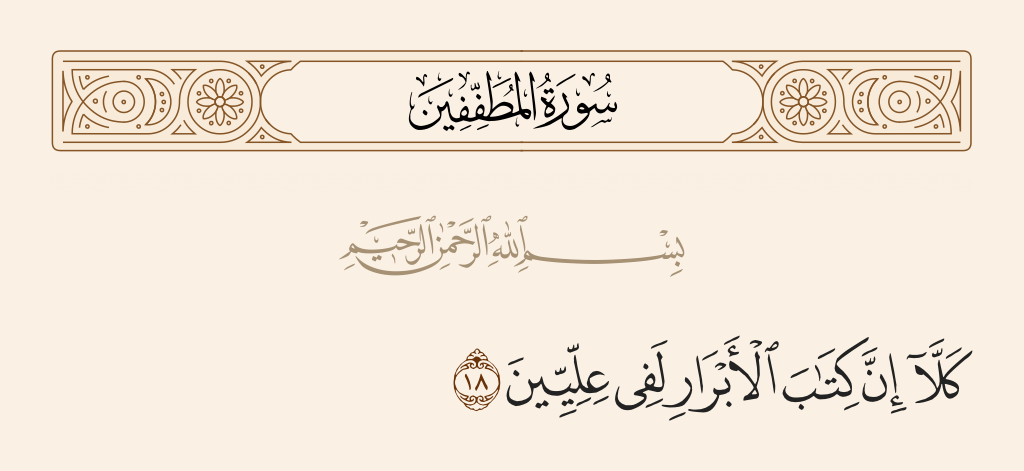 سُورَةُ المُطَفِّفِينَ
بِسْمِ ٱللَّهِ ٱلرَّحْمَٰنِ ٱلرَّحِيمِ
كَلَّآ إِنَّ كِتَٰبَ ٱلْأَبْرَارِ لَفِى عِلِّيِّينَ ١٨